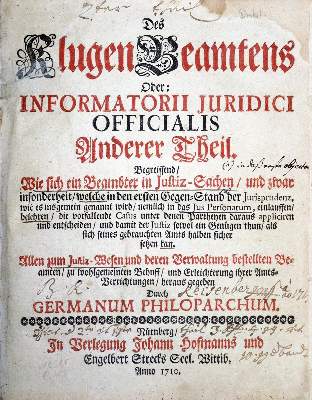 Des
Klugen Beamtens
Oder:
INFORMATORII JURIDICI
OFFICIALIS
Anderer Theil.
Begreiffend/
Wie sich ein Beambter in Justiz-Sachen/ und zwar
insonderheit/ welche in den ersten Gegen-Stand der Jurisprudenz,
wie es insgemein genannt wird/ nemlich in das Jus Personarum, einlauffen/
belehren/ die vorfallende Casus unter denen Partheyen daraus appliciren
und entscheiden/ und damit der Justiz sowol ein Genügen thun/ als
sich seines gebrauchten Amts halben sicher
setzen kan.
Allen zum Justiz-Wesen und deren Verwaltung bestellten Be-
amten/ zu wohlgemeinten Behuff/ und Erleichterung ihrer Amts-
Verrichtungen/ heraus gegeben
Durch
GERMANUM PHILOPARCHUM.
Nürnberg/
In Verlegung Johann Hofmanns und
Engelbert Strecks Seel. Wittib,
Anno 1710.